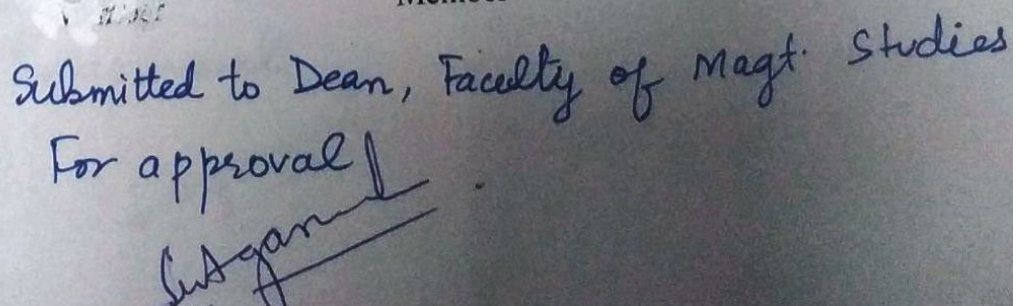 Submitted to Dean, Faculty of Magt. Studies
For approval